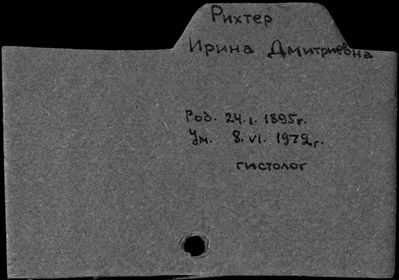 Рихтер
Ирина Дмитриевна
Род. 24.I. 1895г.
Ум. 8.VI. 1972г.
гистолог